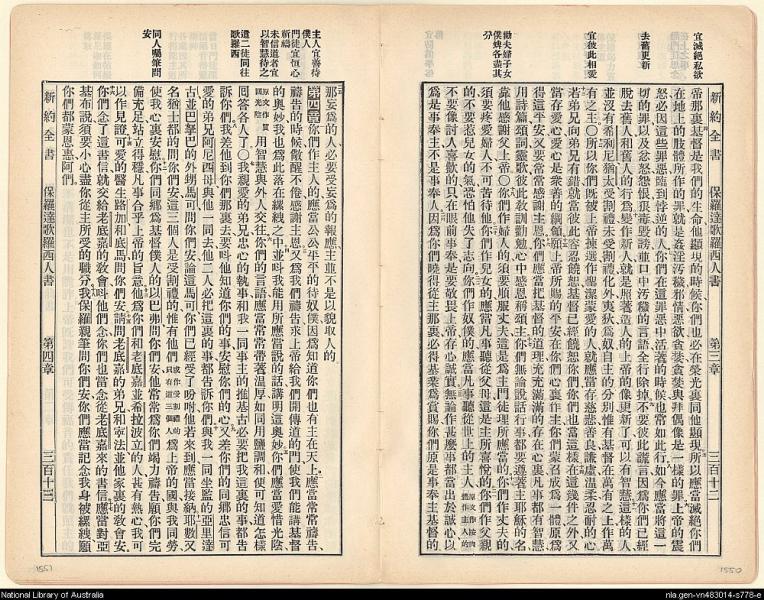 宜滅絕私欲
去舊更新
宜彼此相愛
勸夫婦子女
僕婢各盡其
分
新約全書 保羅達歌羅西人書 第三章 三百十二
帝那裏基督是我們的生命他顯現的時候你們也必在榮光裏同他顯現所以應當滅絕你們
在地上的肢體所作的罪就是姦淫汚穢邪情惡欲貪婪貪婪與拜偶像是一樣的罪上帝的震
怒必因這些罪惡臨到悖逆的人你們在這罪惡中活著的時候也常如此行如今應當將這一
切的罪以及忿怒怨恨狠毒毀謗並口中汚穢的言語全行除掉不要彼此謊言因爲你們已經
脫去舊人和舊人的行爲變作新人就是照著造人的上帝的像更新了可以有智慧這樣的人
並沒有希利尼猶太受割禮未受割禮化外夷狄爲奴自主的分別惟有基督在萬有之上作萬
有之主〇所以你們旣被上帝揀選作聖潔蒙愛的人就應當存慈悲善良謙虛溫柔忍耐的心
若弟兄向弟兄有錯就當彼此容忍饒恕基督已經饒恕你們你們也當這樣在這幾件之外又
當存愛心愛心是衆善的綱領願上帝所賜的平安在你們心裏作主你們蒙召成爲一體原爲
得這平安又要常常感謝主恩你們應當把基督的道理充充滿滿的存在心裏凡事都有智慧
用詩篇頌詞靈歌彼此敎訓勸勉心中感恩稱頌主你們無論說話行事都要遵著主耶穌的名
靠他感謝父上帝〇你們作婦人的須要順服丈夫這是爲主門徒理所應當的你們作丈夫的
須要疼愛婦人不可苦待他你們作兒女的應當凡事聽從父母這是主所喜悅的你們作父親
的不要惹兒女的氣恐怕他失了志向你們作奴僕的應當凡事聽從世上的主人
不要像討人喜歡的只在眼前事奉是要敬畏上帝存心誠實無論作甚麼事都當出於誠心以
爲是事奉主不是事奉人因爲你們曉得從主那裏必得基業爲賞賜你們原是事奉主基督的
主人宜善待
僕人
門徒宜恒心
祈禱
未信道者宜
以智慧待之
遣二徒同往
歌羅西
同人囑筆問
安
新約全書 保羅達歌羅西人書 第四章 三百十三
那妄爲的人必要受妄爲的報應主並不是以貌取人的
第四章 你們作主人的應當公公平平的待奴僕因爲知道你們也有主在天上應當常常禱告
禱告的時候儆醒不倦感謝主恩又爲我們禱告求上帝給我們開傳道的門使我們能講基督
的奧妙我也爲此落在縲絏之中並叫我能用所應當說的話講明這奧妙你們應當愛惜光陰
用智慧與外人交往你們的言語應當常常帶著溫厚如同用鹽調和便可知道怎樣
回答各人了〇我親愛的弟兄忠心的執事和我一同事主的推基古必要把我這裏的事都告
訴你們我差他到你們那裏去要叫他知道你們的事安慰你們的心又差你們的同鄉忠信可
愛的弟兄阿尼西母與他一同去他二人必把這裏的事都告訴你們與我一同坐監的亞里達
古並巴拏巴的外甥馬可問你們安論這馬可你們已經受了吩咐他若來到應當接納耶數又
名猶士都的問你們安這三個人是受割禮的惟有他們爲上帝的國與我同勞
使我心裏安慰你們同鄉爲基督僕人的以巴弗問你們安他常常爲你們竭力禱告願你們完
備充足站立得穩凡事合乎上帝的旨意他爲你們和老底嘉並希拉波立的人甚有熱心我可
以作見證可愛的醫生路加和底馬問你們安請問老底嘉的弟兄和寧法並他家裏的敎會安
你們念了這書信就交給老底嘉的敎會叫他們念你們也當念從老底嘉來的書信應當對亞
基布說須要小心盡你從主所受的職分我保羅親筆問你們安你們應當記念我身被縲絏願
你們都蒙恩惠阿們
1551
1550
National Library of Australia
nla.gen-vn483014-s778-e